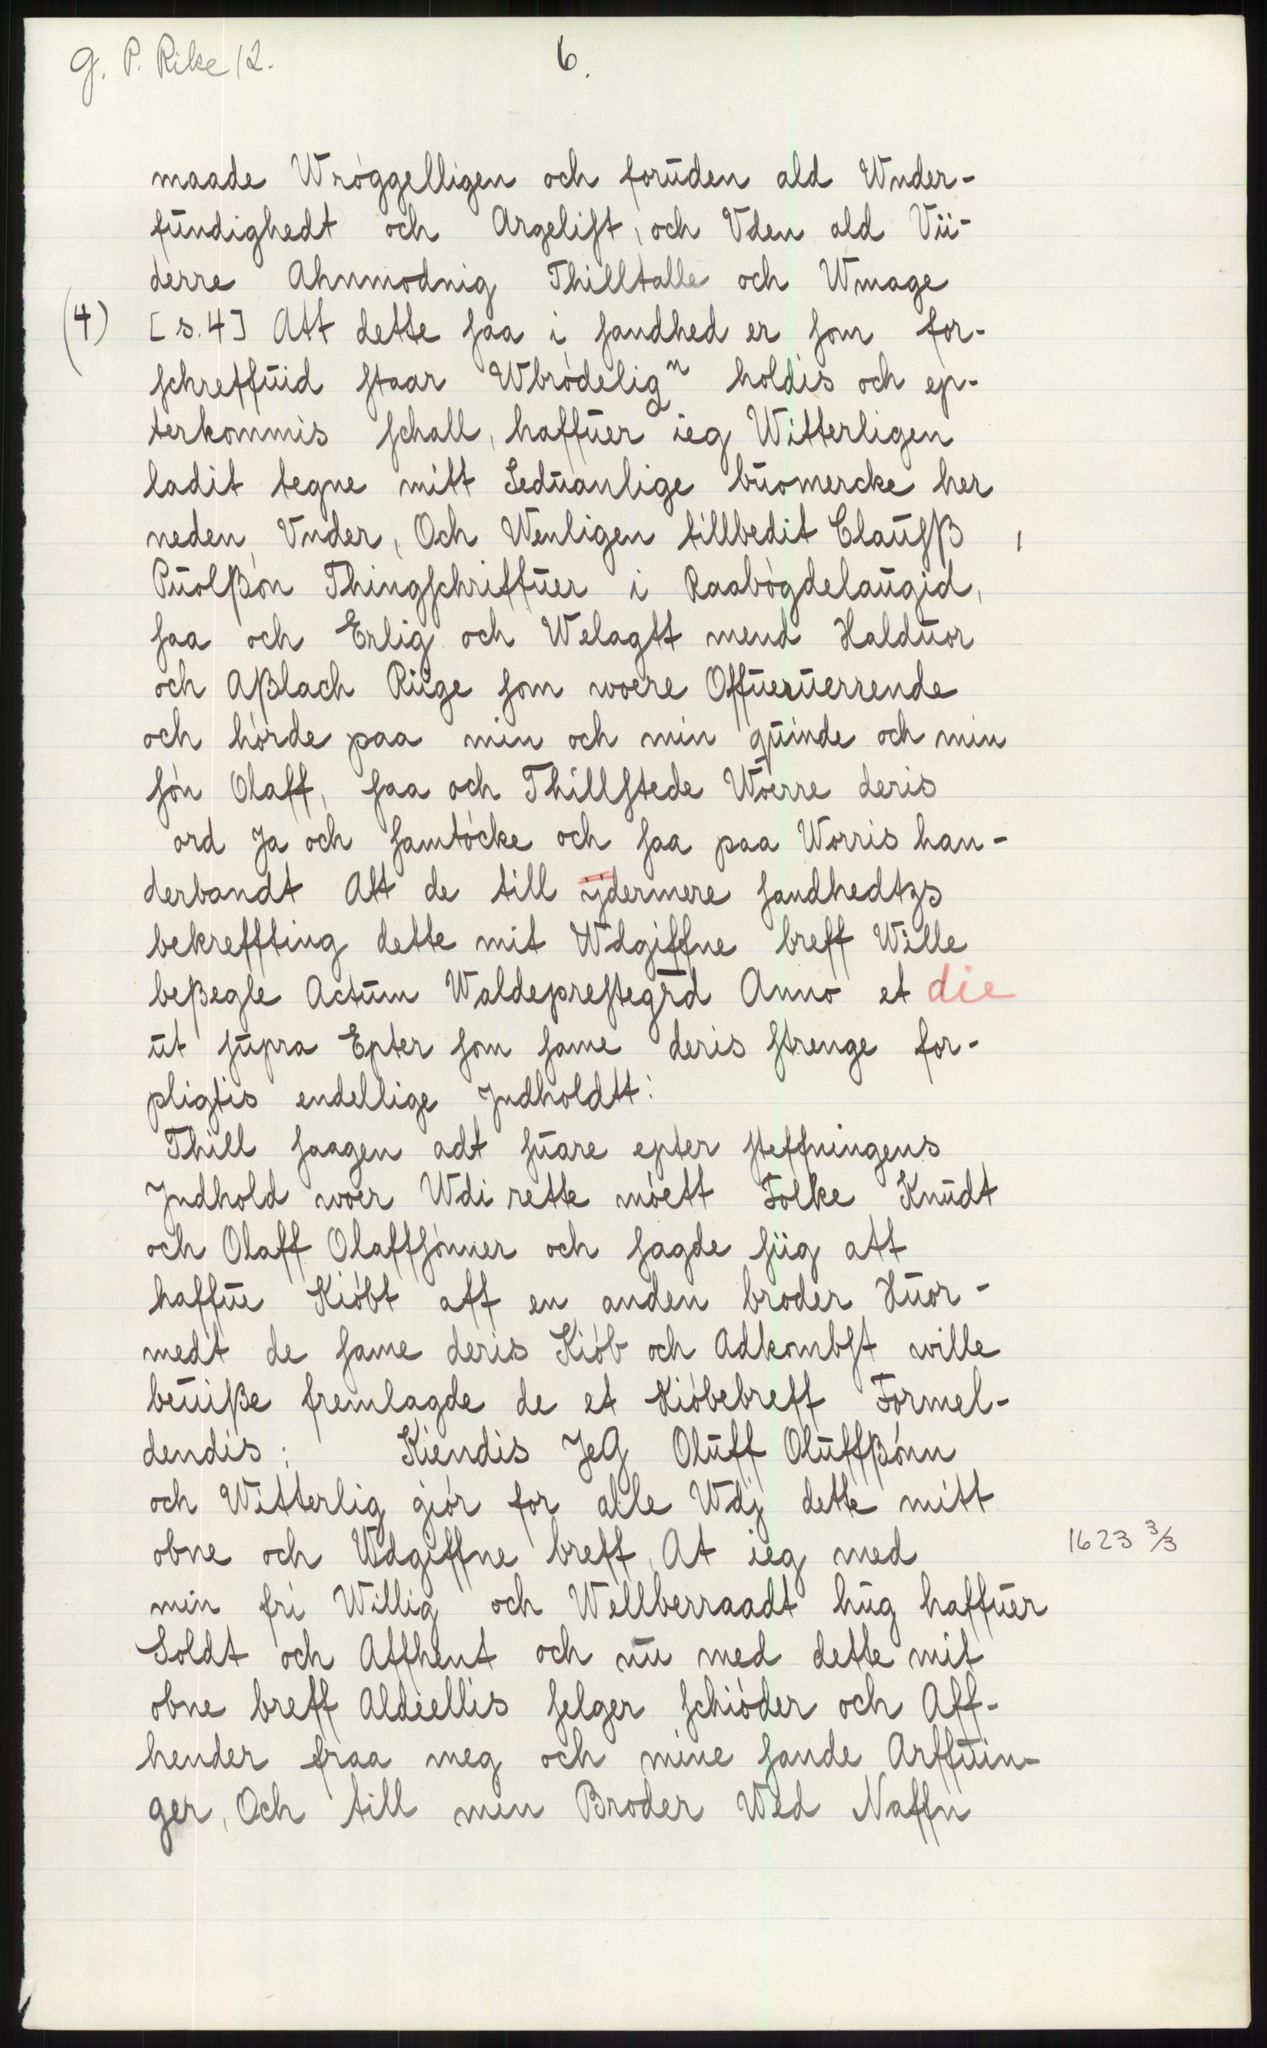 g. P. Rike 12.
6.
maade Wróggelligen och foruden ald Wnder-
fundighedt och Argelist, och Vden ald Vii-
derre Ahnmodnig Thilltalle och Wmage
(4) [s. 4] Att dette saa i sandhed er som for-
schreffuid staar Wbródeligⁿ holdis och ep-
terkommis schall, haffuer ieg Witterligen
ladit tegne mitt Seduanlige buomercke her
neden, Vnder, Och Wenligen tillbedit Claufß
Puolßón Thingschriffuer i Raabógdelaugid,
saa och Erlig och Welagtt mend Halduor
och Aßlach Riige som woere Offueruerrende
och hórde paa min och min quinde och min
són Olaff, saa och Thillstede Woerre deris
ord Ja och samtócke och saa paa Worris han-
derbandt Att de till ijdermere sandhedtzs
bekreffting dette mit Wdgiffne breff Wille
beßegle Actum Waldeprestegrd Anno et die
ut supra Epter som same deris strenge for-
pligtis endellige Jndholdtt:
Thill saagen adt suare epter steffningens
Jndhold woer Wdi rette móett Folke Knudt
och Olaff Olaffsónner och sagde siig att
haffue Kióbt aff en anden broder Huor-
medt de same deris Kiób och Adkombst wille
beuiße fremlagde de et Kióbebreff Formel-
dendis: Kiendis JeG Oluff Oluffßónn
och Witterlig giór for alle Wdj dette mitt
obne och Wdgiffne breff, At ieg med
1623 3/3
min fri Willig och Wellberraadt hug haffuer
Soldt och Affhent och nu med dette mit
obne breff Aldiellis selger schióder och Aff-
hender fraa meg och mine sande Arffuin-
ger, Och till min Broder Wed Naffn